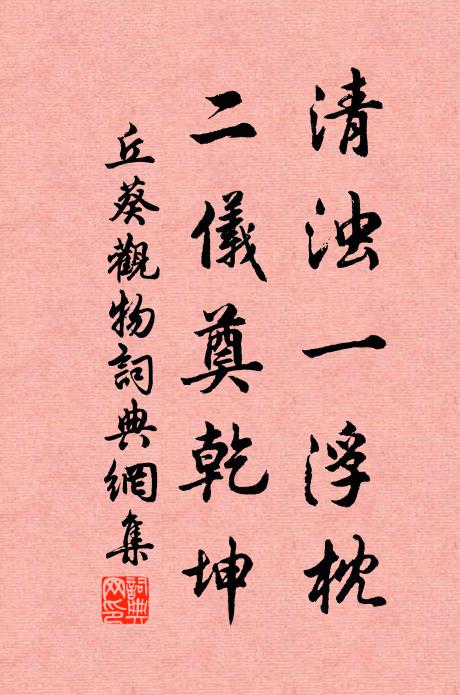 清浊一浮枕
二儀奠乾坤
丘葵觀物詞典網集
詞典网印